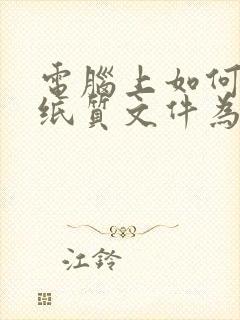 電腦上如何
纸質文件為
江鈴